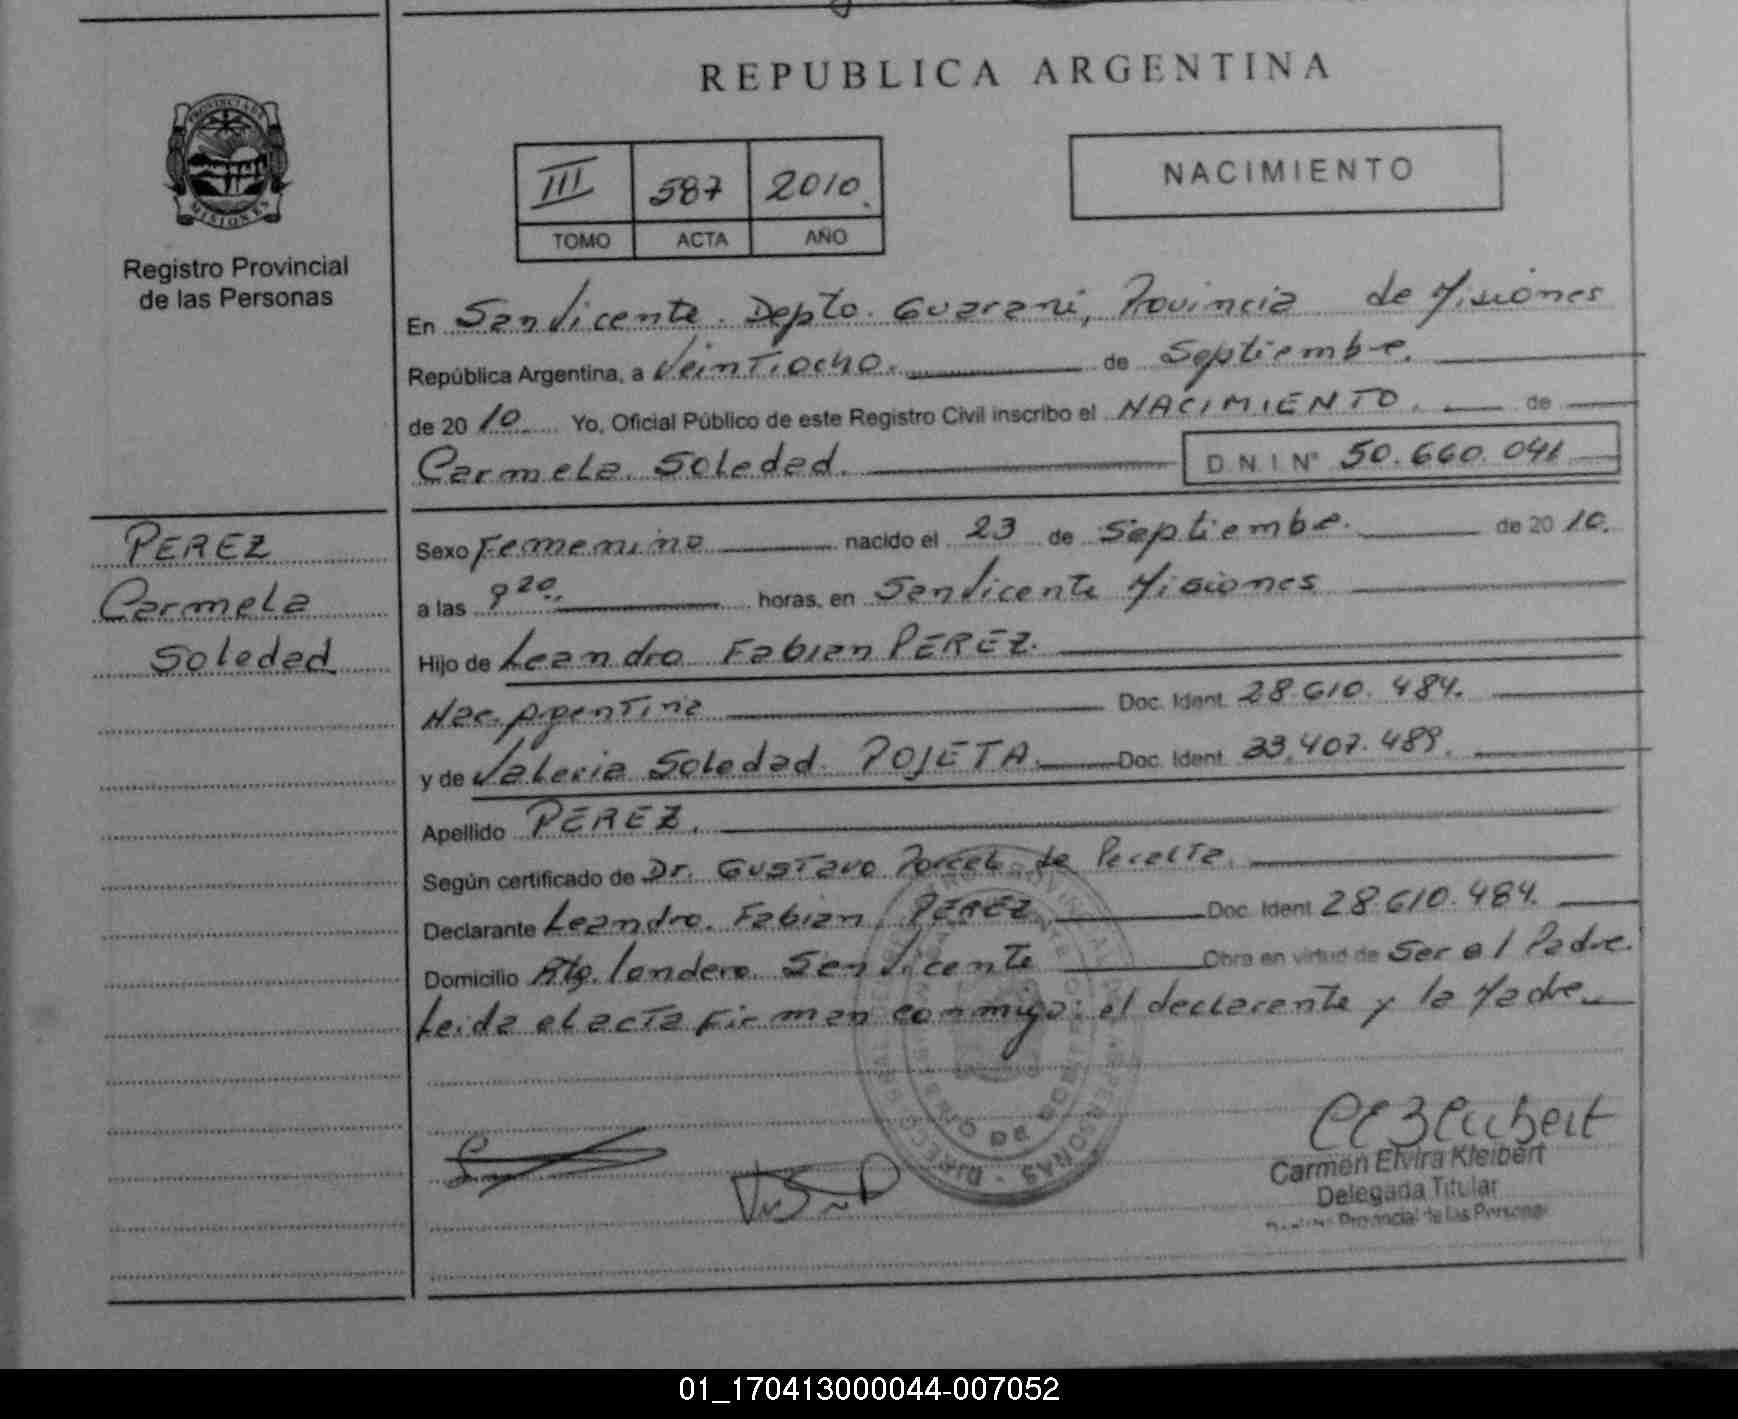 REPUBLICA ARGENTINA
PROVINCIA DE
MISIONES
Registro Provincial
de las Personas
III 587 2010.
TOMO ACTA AÑO
NACIMIENTO
En San Vicente. Depto. Guarani, Provincia de Misiones
República Argentina, a Veintiocho. de Septiembre.
de 2010. Yo, Oficial Público de este Registro Civil inscribo el NACIMIENTO. de
Carmela. Soledad. D.N.I Nº 50.660.041
PEREZ
Carmela
Soledad
Sexo Femenino nacido el 23 de Septiembre. de 2010.
a las 9 20. horas, en San Vicente Misiones
Hijo de Leandro Fabian PEREZ.
Nac. Argentina Doc. Ident. 28.610.484.
y de Valeria Soledad. POJETA. Doc. Ident. 33.407.489.
Apellido PEREZ.
Según certificado de Dr. Gustavo Porcel de Peralta.
Declarante Leandro. Fabian. PEREZ Doc. Ident 28.610.484.
Domicilio San Vicente Obra en virtud de Ser el Padre.
Leida el acta firman conmigo: el declarante y la Madre.
Carmen Elvira Kleibert
Delegada Titular
Provincial de las Personas
01_170413000044-007052